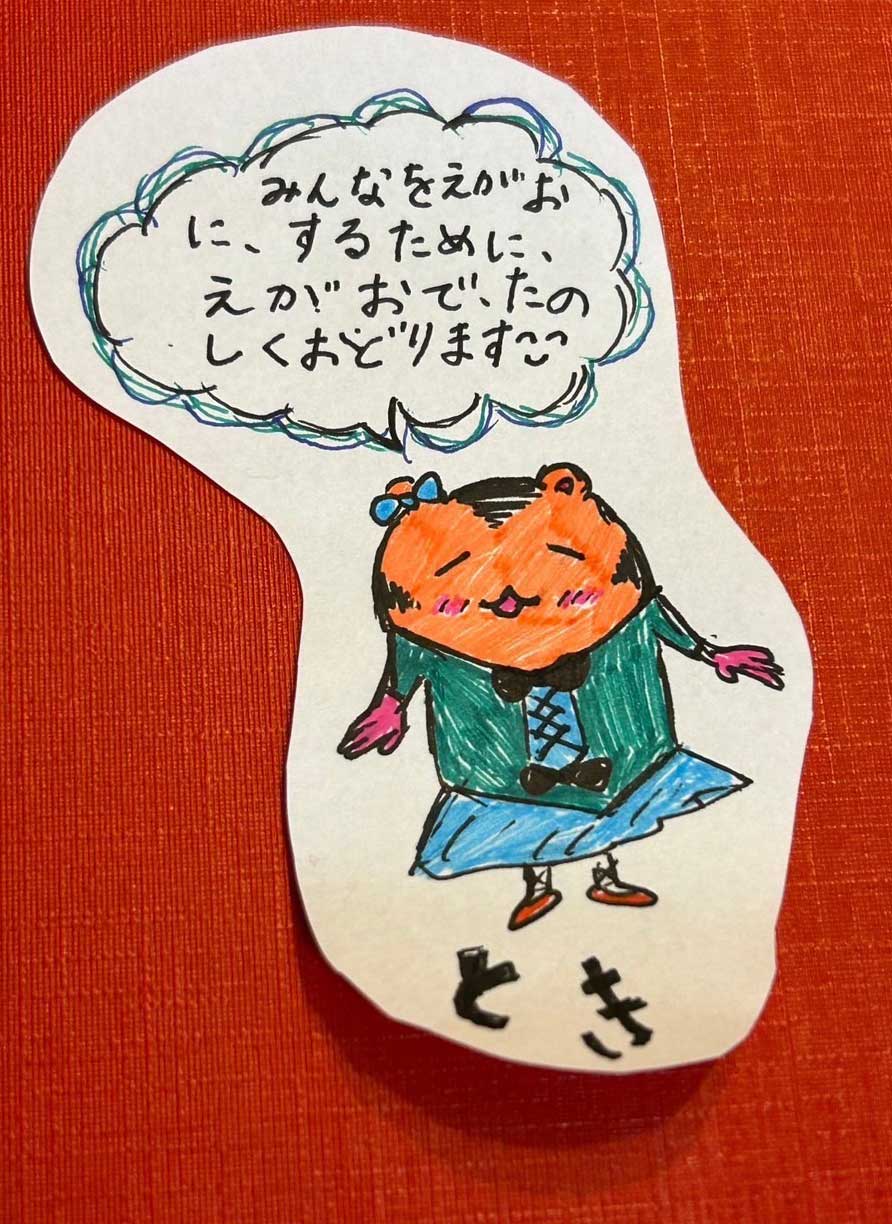 みんなをえがお
に、するために、
えがおで、たの
しくおどります
とき